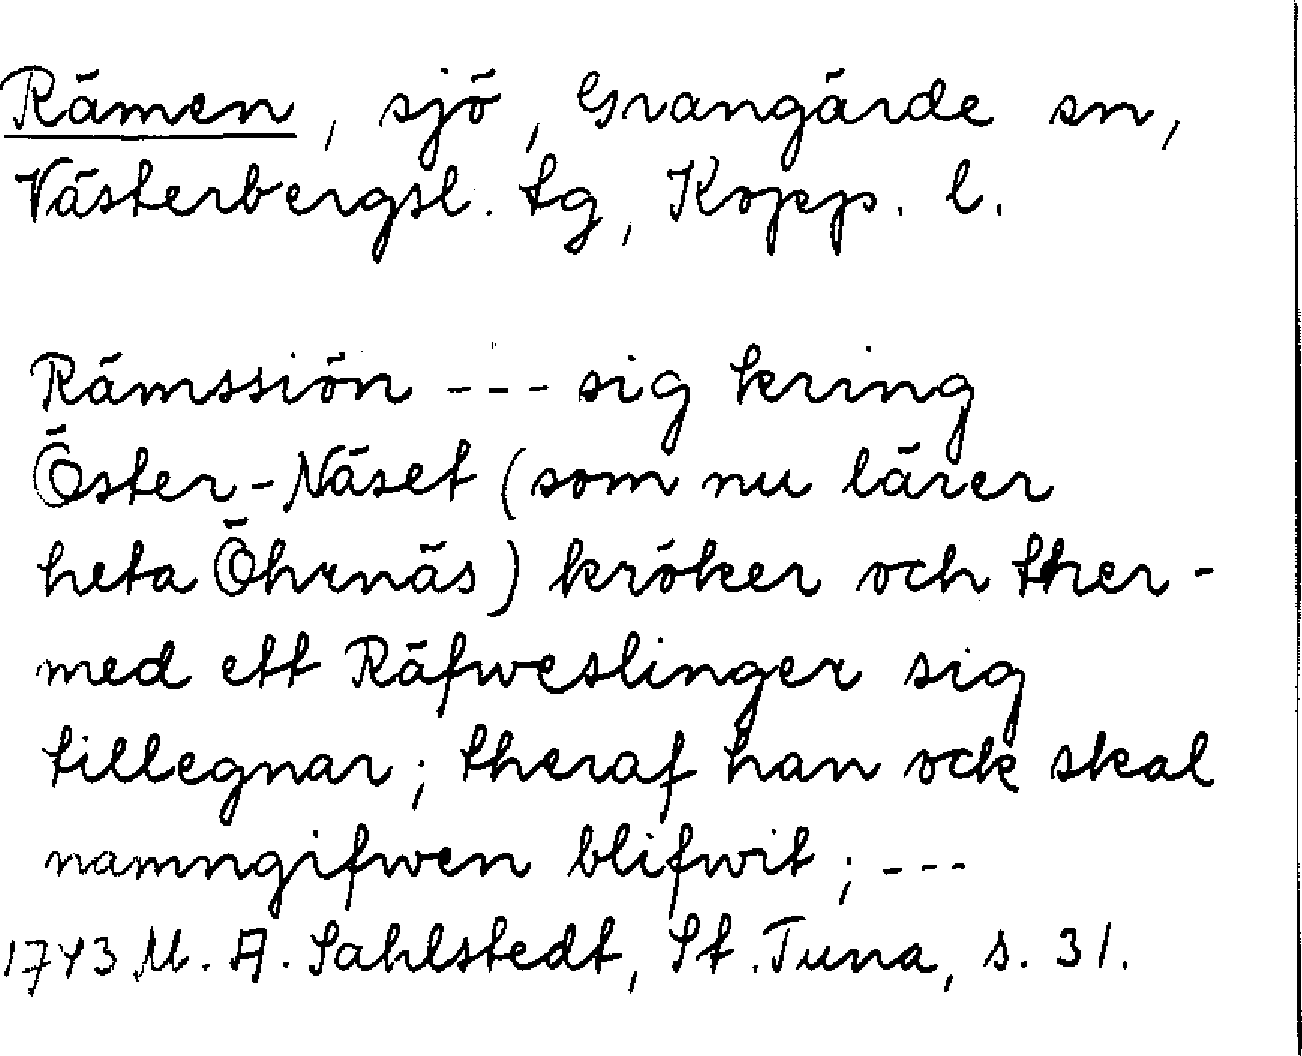 Rämen, sjö, Grangärde sn,
Västerbergsl. tg, Kopp. l.
Rämssiön --- sig kring
Öster-Näset (som nu lärer
heta Öhrnäs) kröker och ther-
med ett Räfweslinger sig
tillegnar; theraf han ock skal
namngifwen blifwit; ---
1743 M. A. Sahlstedt, St. Tuna, s. 31.